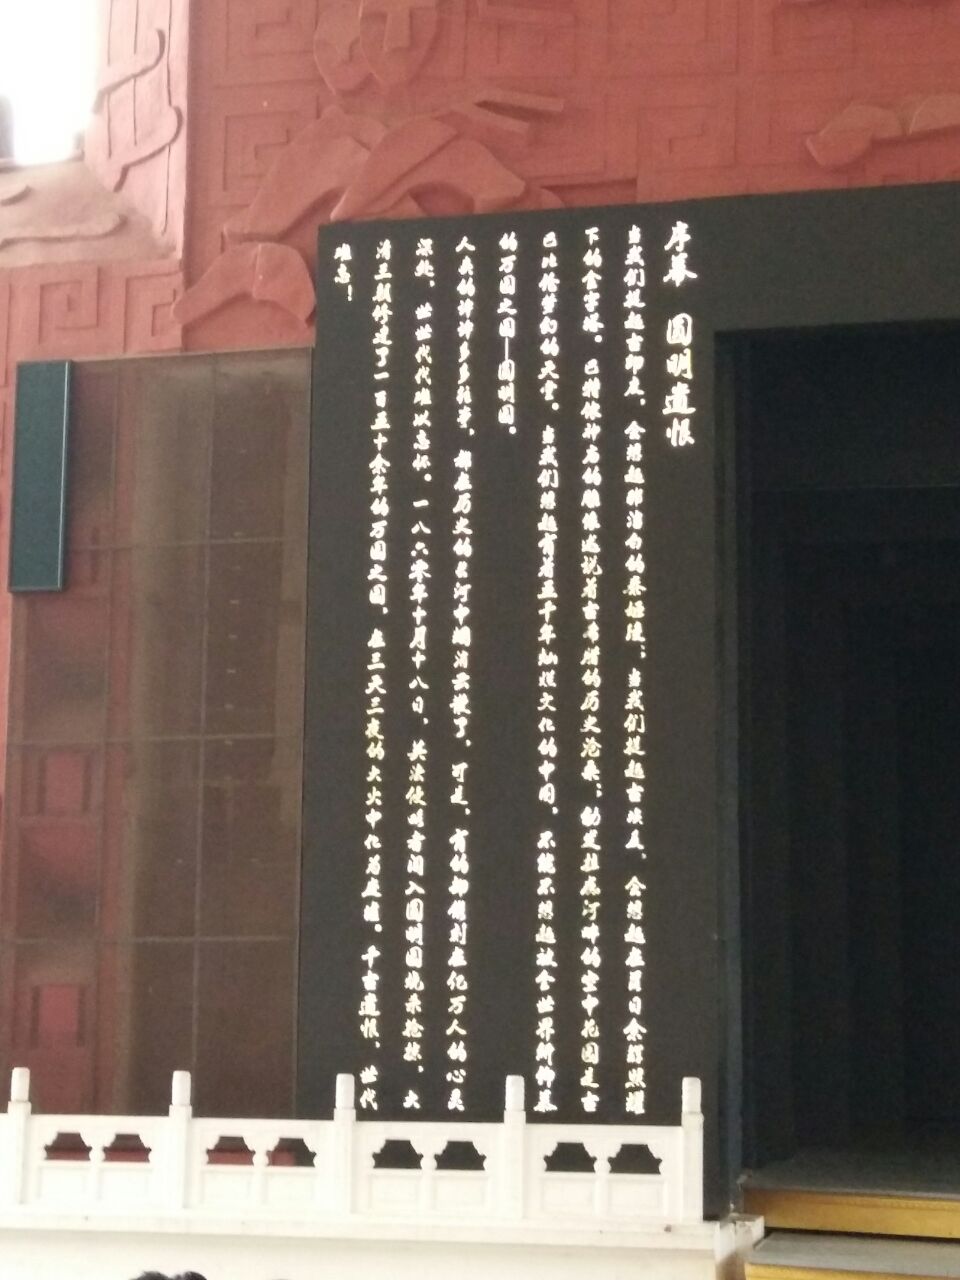 序幕 圆明遗恨
当我们提起古印度，会想起那洁白的泰姬陵；当我们提起古埃及，会想起在月日余辉照耀
下的金字塔。巴特侬神庙的雕像述说着古希腊的历史沧桑；幼发拉底河畔的空中花园是古
巴比伦梦幻的天堂。当我们想起有着五千年灿烂文化的中国，不能不想起被全世界所仰慕
的万园之园—圆明园。
人类的许许多多往事，都在历史的长河中烟消云散了，可是，有的却镌刻在亿万人的心灵
深处，世世代代难以忘怀。一八六零年十月十八日，英法侵略者闯入圆明园烧杀抢掠，大
清三朝修造了一百五十余年的万园之园，在三天三夜的大火中化为废墟。千古遗恨、世代
难忘！